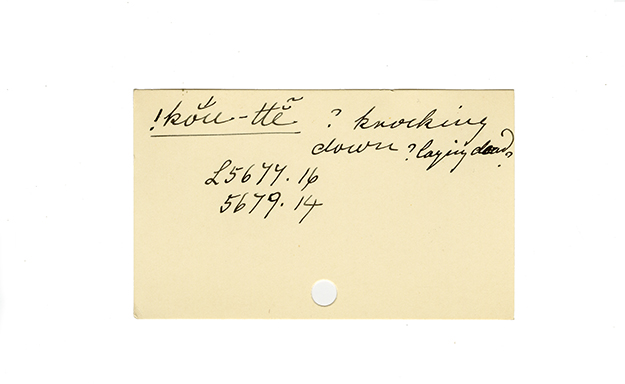 !kŏ́u-ttĕ̃ ? knocking
down ? laying dead?
L5677.16
5679.14